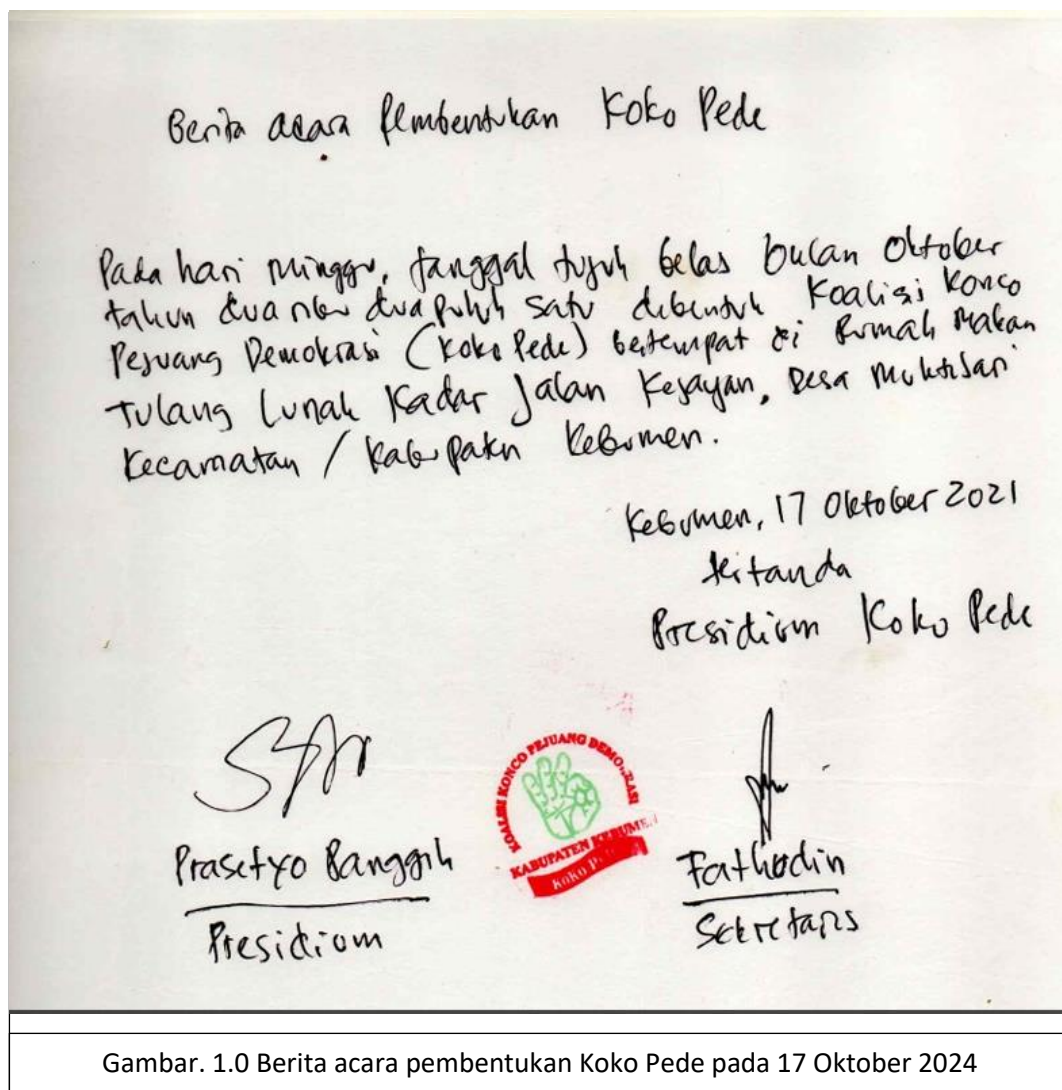 Berita acara Pembentukan Koko Pede
Pada hari Minggu, tanggal tujuh belas bulan Oktober
tahun dua ribu dua puluh satu dibentuk Koalisi Konco
Pejuang Demokrasi (Koko Pede) bertempat di Rumah Makan
Tulang Lunak Kadar Jalan Kejayan, Desa Muktisari
Kecamatan / Kabupaten Kebumen.
Kebumen, 17 Oktober 2021
tertanda
Presidium Koko Pede
KOALISI KONCO PEJUANG DEMOKRASI
KABUPATEN KEBUMEN
Koko
Prasetyo Panggih
Fathodin
Presidium
Sekretaris
Gambar. 1.0 Berita acara pembentukan Koko Pede pada 17 Oktober 2024